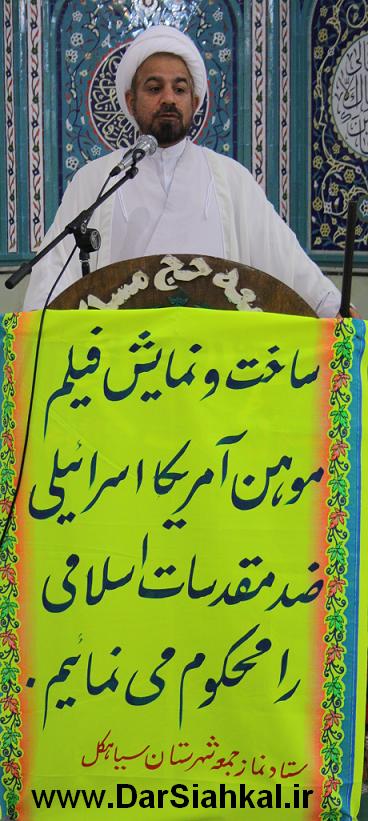 ساخت و نمایش فیلم
موهن آمریکا اسرائیلی
ضد مقدسات اسلامی
را محکوم می نمائیم.
ستاد نماز جمعه شهرستان سیاهکل
www.DarSiahkal.ir